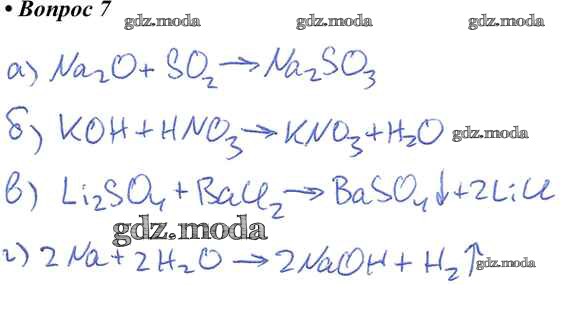 • Вопрос 7
gdz.moda gdz.moda gdz.moda
а) Na₂O + SO₂ → Na₂SO₃
б) KOH + HNO₃ → KNO₃ + H₂O gdz.moda
в) Li₂SO₄ + BaCl₂ → BaSO₄↓ + 2LiCl
gdz.moda
г) 2Na + 2H₂O → 2NaOH + H₂↑ gdz.moda